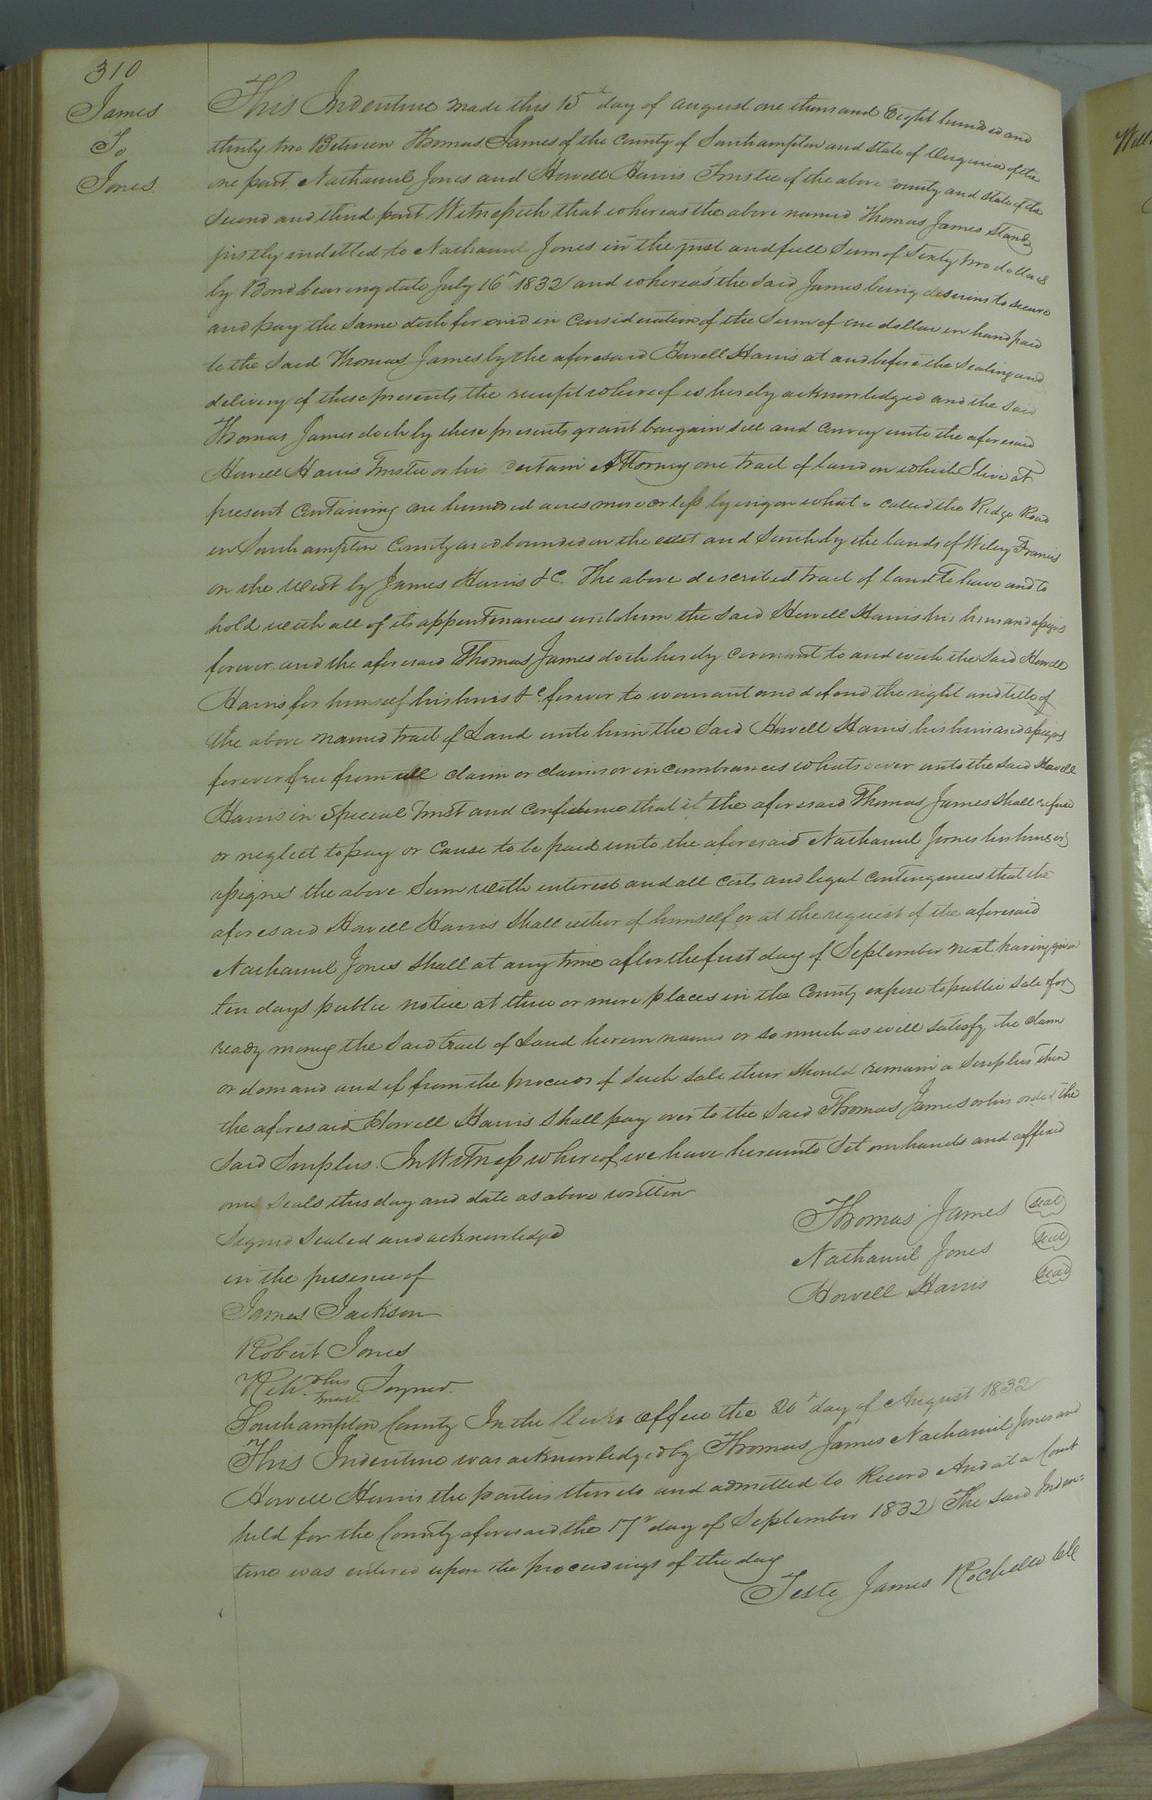 310
James
To
Jones
This Indenture made this 15th day of august one thousand Eight hundred and
thirty two Between Thomas James of the County of Southampton and State of Virginia of the
one part Nathaniel Jones and Howell Harris Trustee of the above county and State of the
Second and third part Witnesseth that whereas the above named Thomas James Stands
justly indebted to Nathaniel Jones in the just and full Sum of Sixty two dollars
by Bond bearing date July 16th 1832 and whereas the Said James being desirous to secure
and pay the Same doth for and in Consideration of the Sum of one dollar in hand paid
to the Said Thomas James by the aforesaid Howell Harris at and before the Sealing and
delivery of these presents the receipt whereof is hereby acknowledged and the Said
Thomas James doth by these presents grant bargain Sell and Convey unto the aforesaid
Howell Harris Trustee or his certain Attorney one tract of land on which I live at
present Containing one hundred acres more or less lying on what is called the Ridge Road
in Southampton County and bounded on the east and South by the lands of Wiley Francis
on the West by James Harris &c. The above described tract of land To have and to
hold with all of its appurtenances unto him the Said Howell Harris his heirs and assigns
forever and the aforesaid Thomas James doth hereby covenant to and with the Said Howell
Harris for himself his heirs &c forever to warrant and defend the right and title of
the above named tract of Land unto him the Said Howell Harris his heirs and assigns
forever free from all claim or claims or incumbrances whatsoever unto the Said Howell
Harris in Special Trust and Confidence that if the aforesaid Thomas James Shall refuse
or neglect to pay or Cause to be paid unto the aforesaid Nathaniel Jones his heirs or
assigns the above Sum with interest and all Costs and legal Contingences that the
aforesaid Howell Harris Shall either of himself or at the request of the aforesaid
Nathaniel Jones Shall at any time after the first day of September next having given
ten days public notice at three or more places in the County expose to public Sale for
ready money the Said tract of Land herein named or So much as will Satisfy the claim
or demand and if from the proceeds of Such Sale there Should remain a Surplus then
the aforesaid Howell Harris Shall pay over to the Said Thomas James or his order the
Said Surplus. In Witness whereof we have hereunto Set our hands and affixed
our Seals this day and date as above written
Signed Sealed and acknowledged
in the presence of
Thomas James seal
Nathaniel Jones seal
Howell Harris seal
James Jackson
Robert Jones
his
mark Joyner
Southampton County In the Clerks office the 20th day of August 1832
This Indenture was acknowledged by Thomas James Nathaniel Jones and
Howell Harris the parties thereto and admitted to Record And at a Court
held for the County aforesaid the 17th day of September 1832 The Said Inden=
ture was entered upon the proceedings of the day
Teste James Rochelle Clk